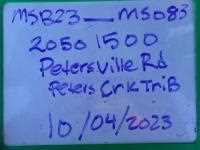 MSB23 — MS083
2050 1500
Petersville Rd
Peters Crk Trib
10/04/2023